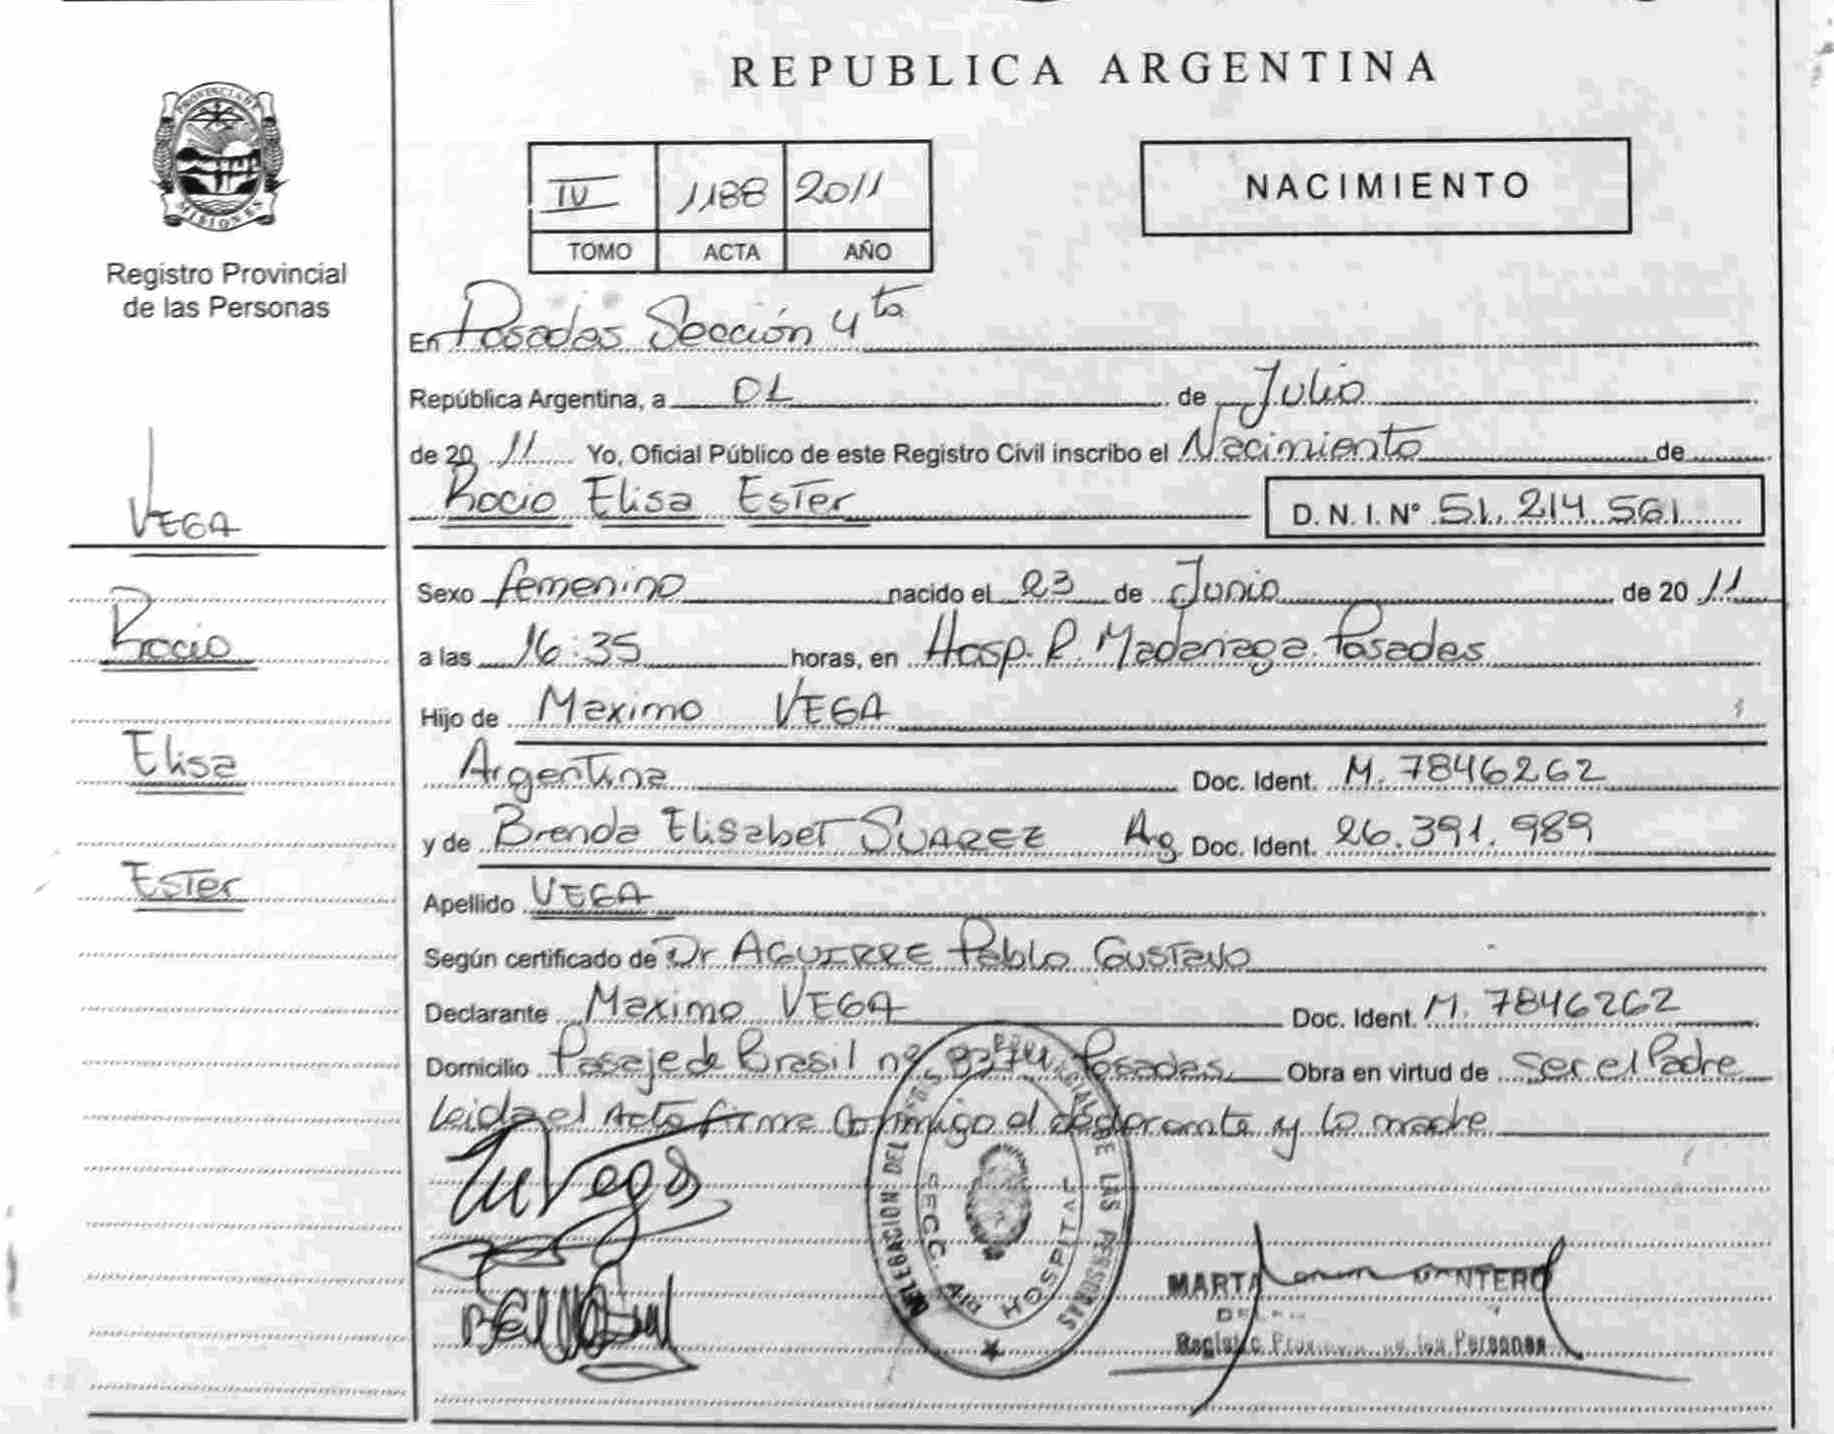 REPUBLICA ARGENTINA
PROVINCIA DE
MISIONES
Registro Provincial
de las Personas
IV 1188 2011
TOMO ACTA AÑO
NACIMIENTO
VEGA
Rocio
Elisa
Ester
En Posadas Sección 4ta
República Argentina, a 01 de Julio
de 2011 Yo, Oficial Público de este Registro Civil inscribo el Nacimiento de
Rocio Elisa Ester D. N. I. Nº 51.214.561
Sexo femenino nacido el 23 de Junio de 2011
a las 16:35 horas, en Hosp. R. Madariaga Posadas
Hijo de Maximo VEGA
Argentina Doc. Ident. M. 7846262
y de Brenda Elisabet SUAREZ Ag Doc. Ident. 26.391.989
Apellido VEGA
Según certificado de Dr AGUIRRE Pablo Gustavo
Declarante Maximo VEGA Doc. Ident. M. 7846262
Domicilio Pasaje de Brasil nº Posadas Obra en virtud de Ser el Padre
Leida el Acta firma Conmigo el declarante y la madre
MVega
DELEGACION DEL DE LAS PERSONAS
SECC. HOSPITAL
MARTA MANTERO
Registro de las Personas